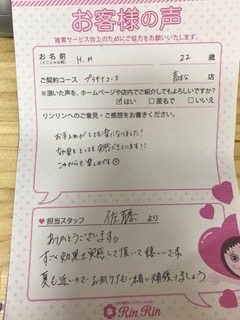 お客様の声
接客サービス向上のためにご協力をお願いいたします。
お名前
(イニシャル可)
H.M
22 歳
ご契約コース
プラチナコース
店
※頂いた声を、ホームページや店内でご紹介してもよろしいですか?
☑はい □匿名で □いいえ
リンリンへのご意見・ご感想をお書きください。
お手入れがとても楽になりました!
効果もとっても実感できています!!
これからも楽しみです
担当スタッフ 佐藤 より
ありがとうございます
すごく効果を実感して頂いて嬉しいです
夏も近いのでお肌りも一緒に頑張りましょう
Rin Rin